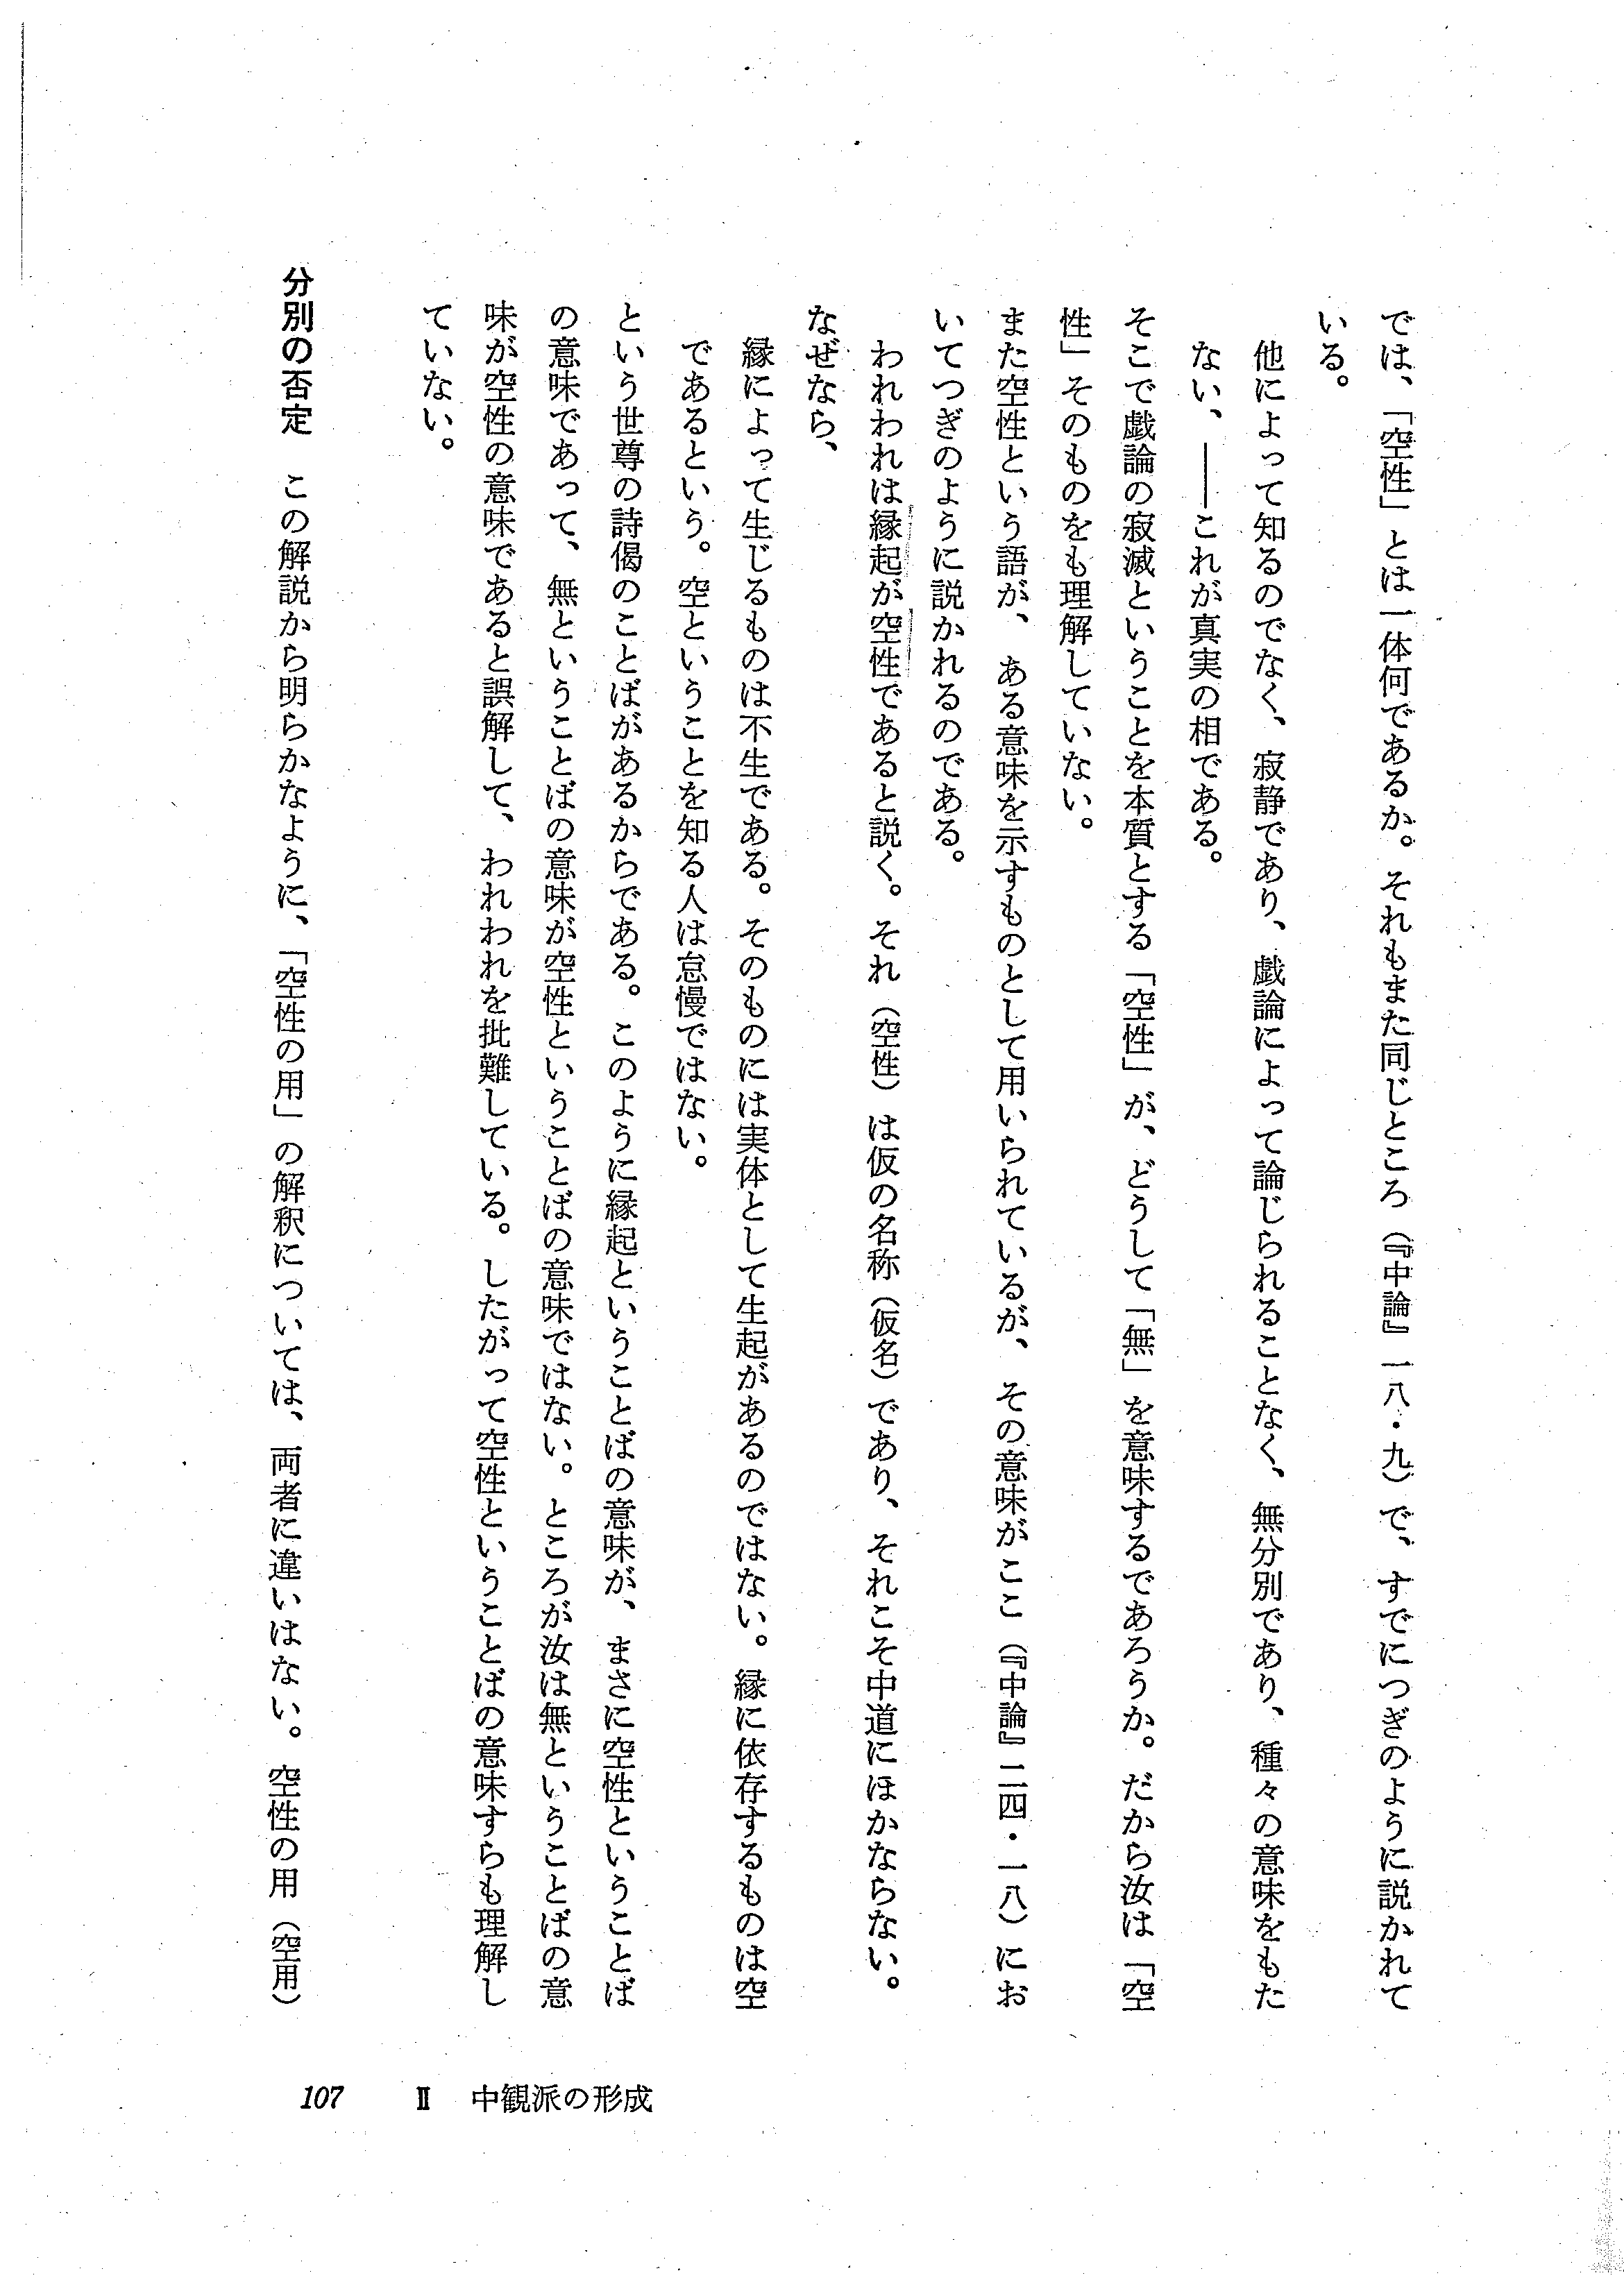 では、「空性」とは一体何であるか。それもまた同じところ（『中論』一八・九）で、すでにつぎのように説かれて
いる。
他によって知るのでなく、寂静であり、戯論によって論じられることなく、無分別であり、種々の意味をもた
ない、――これが真実の相である。
そこで戯論の寂滅ということを本質とする「空性」が、どうして「無」を意味するであろうか。だから汝は「空
性」そのものをも理解していない。
また空性という語が、ある意味を示すものとして用いられているが、その意味がここ（『中論』二四・一八）にお
いてつぎのように説かれるのである。
われわれは縁起が空性であると説く。それ（空性）は仮の名称（仮名）であり、それこそ中道にほかならない。
なぜなら、
縁によって生じるものは不生である。そのものには実体として生起があるのではない。縁に依存するものは空
であるという。空ということを知る人は怠慢ではない。
という世尊の詩偈のことばがあるからである。このように縁起ということばの意味が、まさに空性ということば
の意味であって、無ということばの意味が空性ということばの意味ではない。ところが汝は無ということばの意
味が空性の意味であると誤解して、われわれを批難している。したがって空性ということばの意味すらも理解し
ていない。
分別の否定　この解説から明らかなように、「空性の用」の解釈については、両者に違いはない。空性の用（空用）
107　Ⅱ　中観派の形成